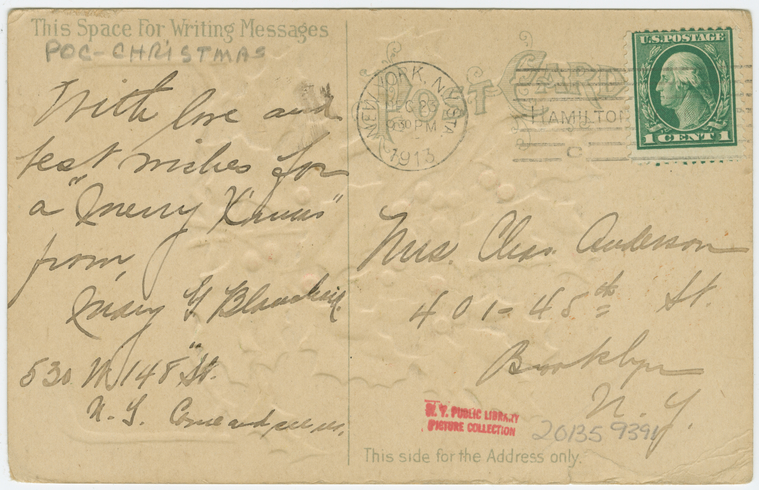 This Space for Writing Messages
POC-CHRISTMAS
With love and
best wishes for
a "Merry X'mas"
from
Mary G.
530 W 148" St.
N.Y. Come and see us.
POST CARD
NEW YORK, N.Y. STA
DEC 23
930 PM
1913
HAMILTON
C
U.S. POSTAGE
1 CENT 1
Mrs. Chas. Anderson
401-45th St.
Brooklyn
N.Y.
N. Y. PUBLIC LIBRARY
PICTURE COLLECTION
20135 9391
This side for the Address only.